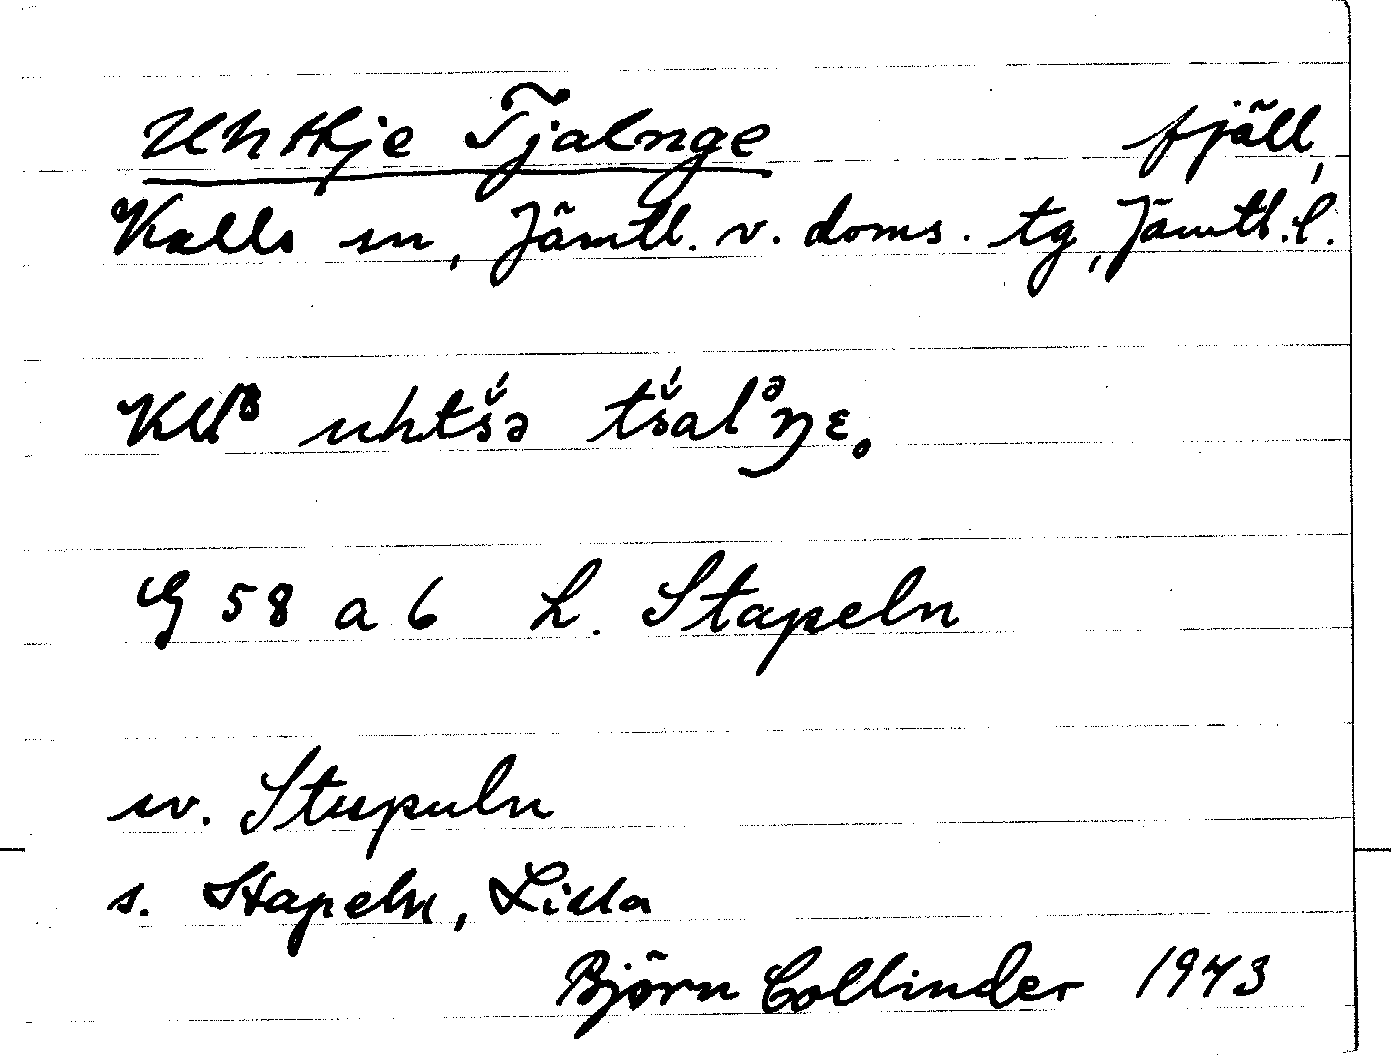 Uhtje Tjalnge fjäll,
Kalls sn, Jämtl. v. doms. tg, Jämtl. l.
uhtš́ə tš́alᵊŋɛ.
G 58 a 6 L. Stapeln
sv. Stupuln
s. Stapeln, Lilla
Björn Collinder 1943